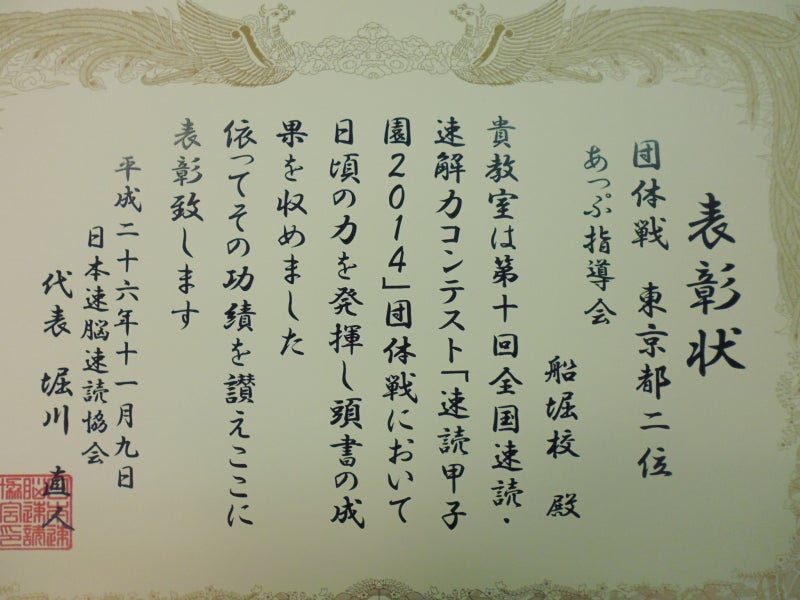 表彰状
団体戦 東京都二位
あっぷ指導会
船堀校 殿
貴教室は第十回全国速読・
速解力コンテスト「速読甲子
園2014」団体戦において
日頃の力を発揮し頭書の成
果を収めました
依ってその功績を讃えここに
表彰致します
平成二十六年十一月九日
日本速脳速読協会
代表 堀川 直人